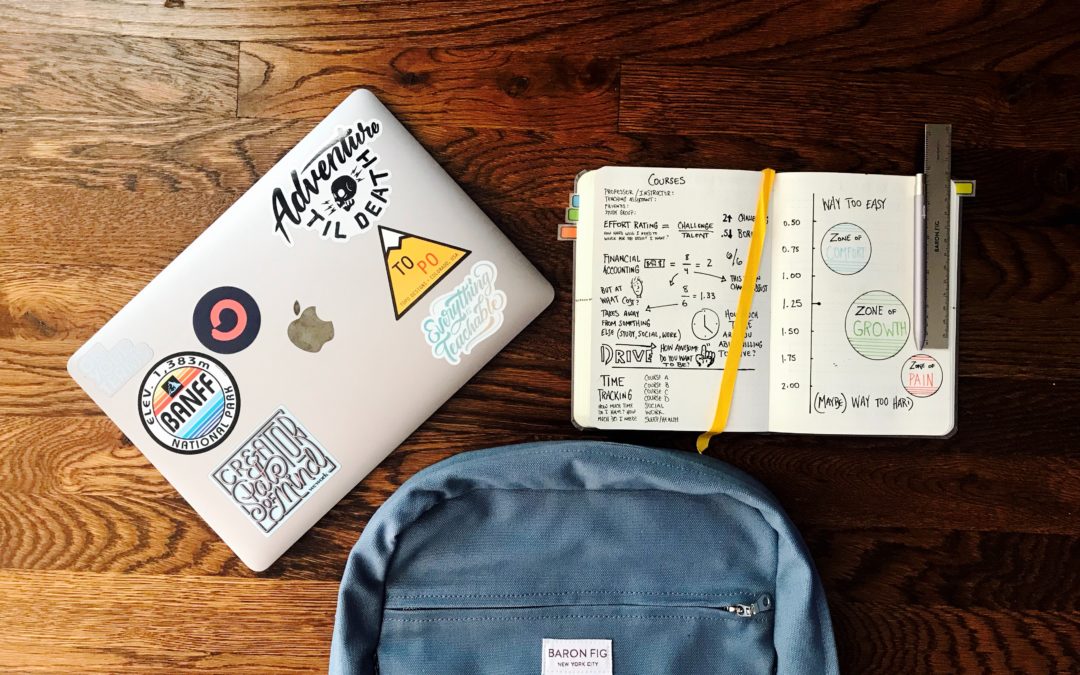 Adventure
TIL
DEATH
TO
PO
FORT COLLINS, COLORADO, USA
Everything
is
Teachable
ELEV. 1,383m
BANFF
NATIONAL PARK
CREATOR
State
of Mind
COURSES
PROFESSOR / INSTRUCTOR:
TEACHING ASSISTANT:
FRIENDS:
STUDY GROUP:
EFFORT RATING = CHALLENGE
TALENT
2↑
.5↓
FINANCIAL
ACCOUNTING
= 8
4
= 2
6/6
BUT AT
WHAT COST?
8
6
= 1.33
TAKES AWAY
FROM SOMETHING
ELSE (STUDY, SOCIAL, WORK)
HOW MUCH
ARE
YOU
DRIVE
HOW AWESOME
DO YOU WANT
TO BE?
TIME
TRACKING
HOW MUCH TIME
DO I HAVE? HOW
MUCH DO I NEED?
COURSE A
COURSE B
COURSE C
COURSE D
SOCIAL
WORK
WAY TOO EASY
0.50
0.75
1.00
1.25
1.50
1.75
2.00
ZONE OF
COMFORT
ZONE OF
GROWTH
ZONE OF
PAIN
(MAYBE) WAY TOO HARD
BARON FIG
BARON FIG
NEW YORK CITY